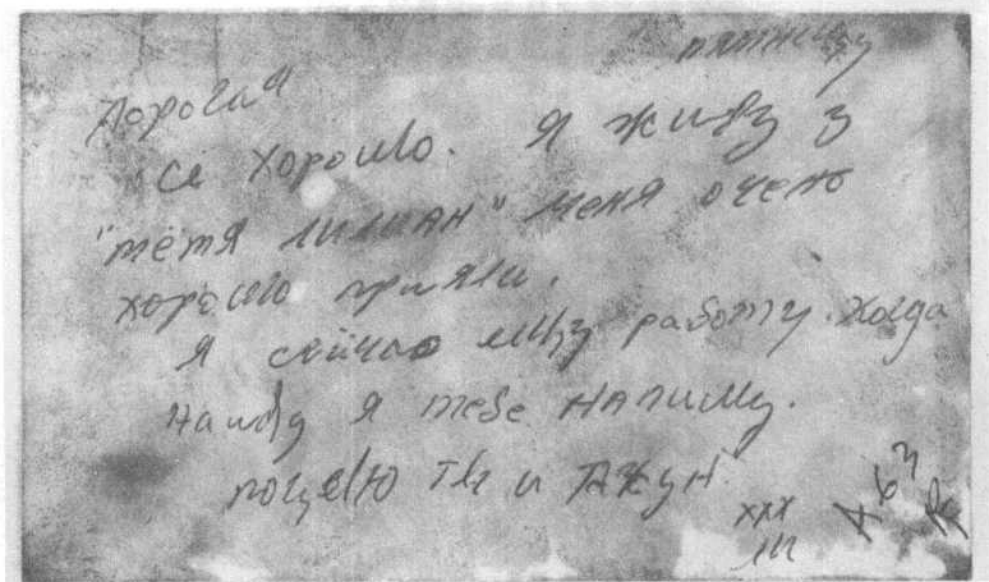 пятницу
Дорогая
все хорошо. Я живу з
"тётя Лилиан" меня очень
хорошо приняли.
Я сейчас ищу работу. Когда
найду я тебе напишу.
поцелю ТЕ и Джун
xxx
А 63